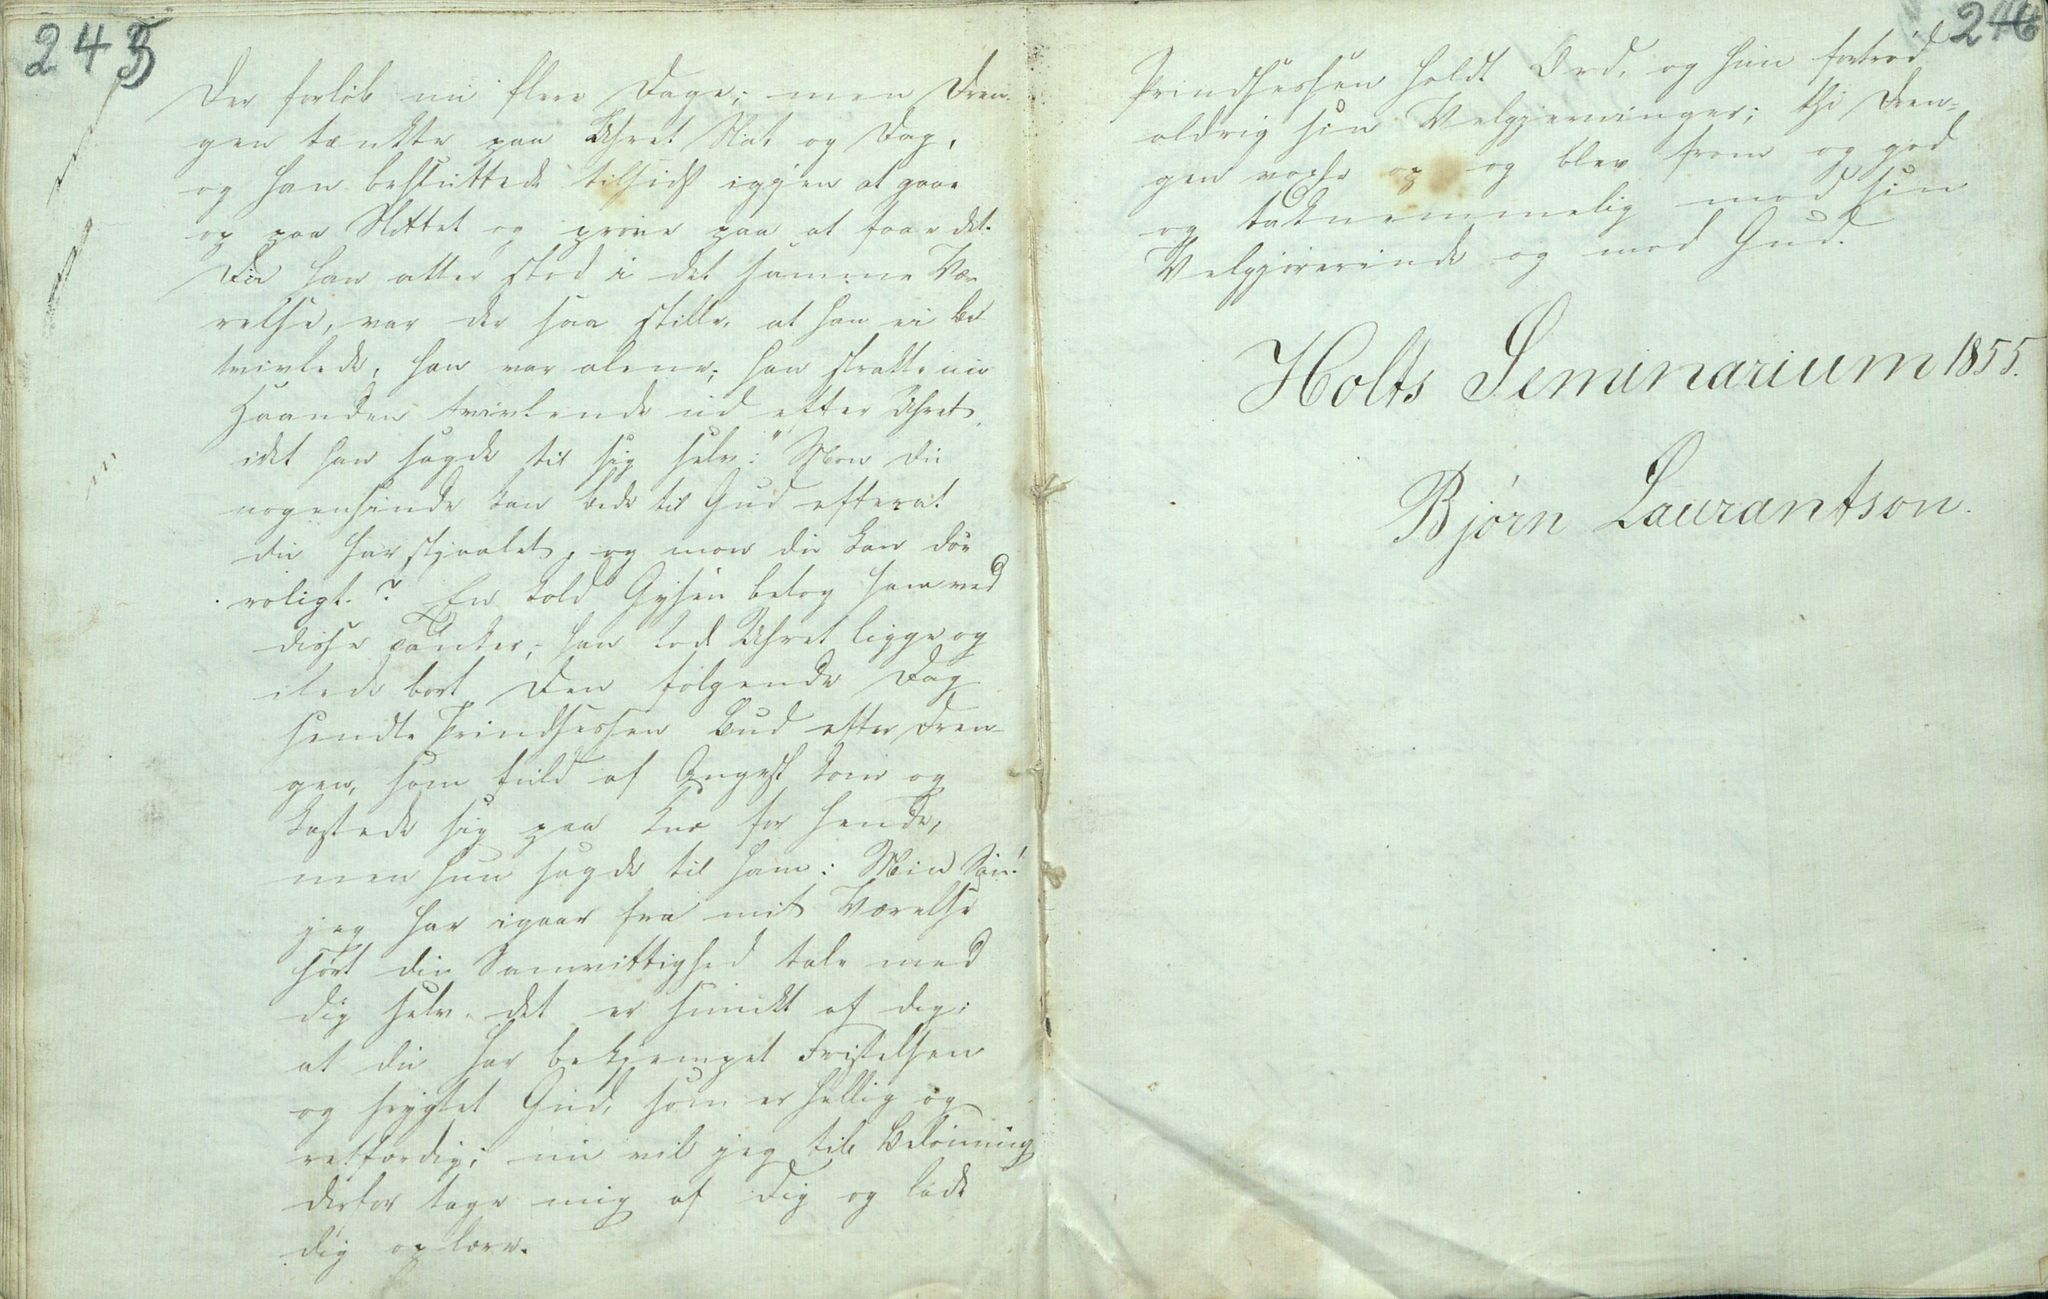 245
Der forløb nu flere Dage; men Dren-
gen tænkte paa Uhret Nat og Dag,
og han besluttede tilsidst igjen at gaae
op paa Slottet og prøve paa at faae det.
Da han atter stod i det samme Væ-
relse, var der saa stille, at han ei be
tvivlede, han var alene; han strakte nu
Haanden tvivlende ud efter Uhret,
idet han sagde til sig selv: "Mon du
nogensinde kan bede til Gud efterat
du har stjaalet, og mon du kan døe
roligt.? En kold Gysen betog ham ved
disse Tanker; han lod Uhret ligge og
ilede bort. Den følgende Dag
sendte Prindsessen Bud efter Dren-
gen, som fuld af Angest kom og
kastede sig paa Knæ for hende,
men hun sagde til ham: Min Søn!
jeg har igaar fra mit Værelse
hørt din Samvittighed tale med
dig selv. det er smukt af dig;
at du har bekjempet Fristelsen
og frygtet Gud, som er hellig og
retfærdig; nu vil jeg til Belønning
derfor tage mig af dig og lade
dig oplære.
246
Prindsessen holdt Ord, og hun fortrød
aldrig sin Velgjerninger; thi Dren-
gen voxte op og blev from og god
og taknemmelig mod sin
Velgjørerinde og mod Gud.
Holts Seminarium 1855.
Bjørn Laurantson.